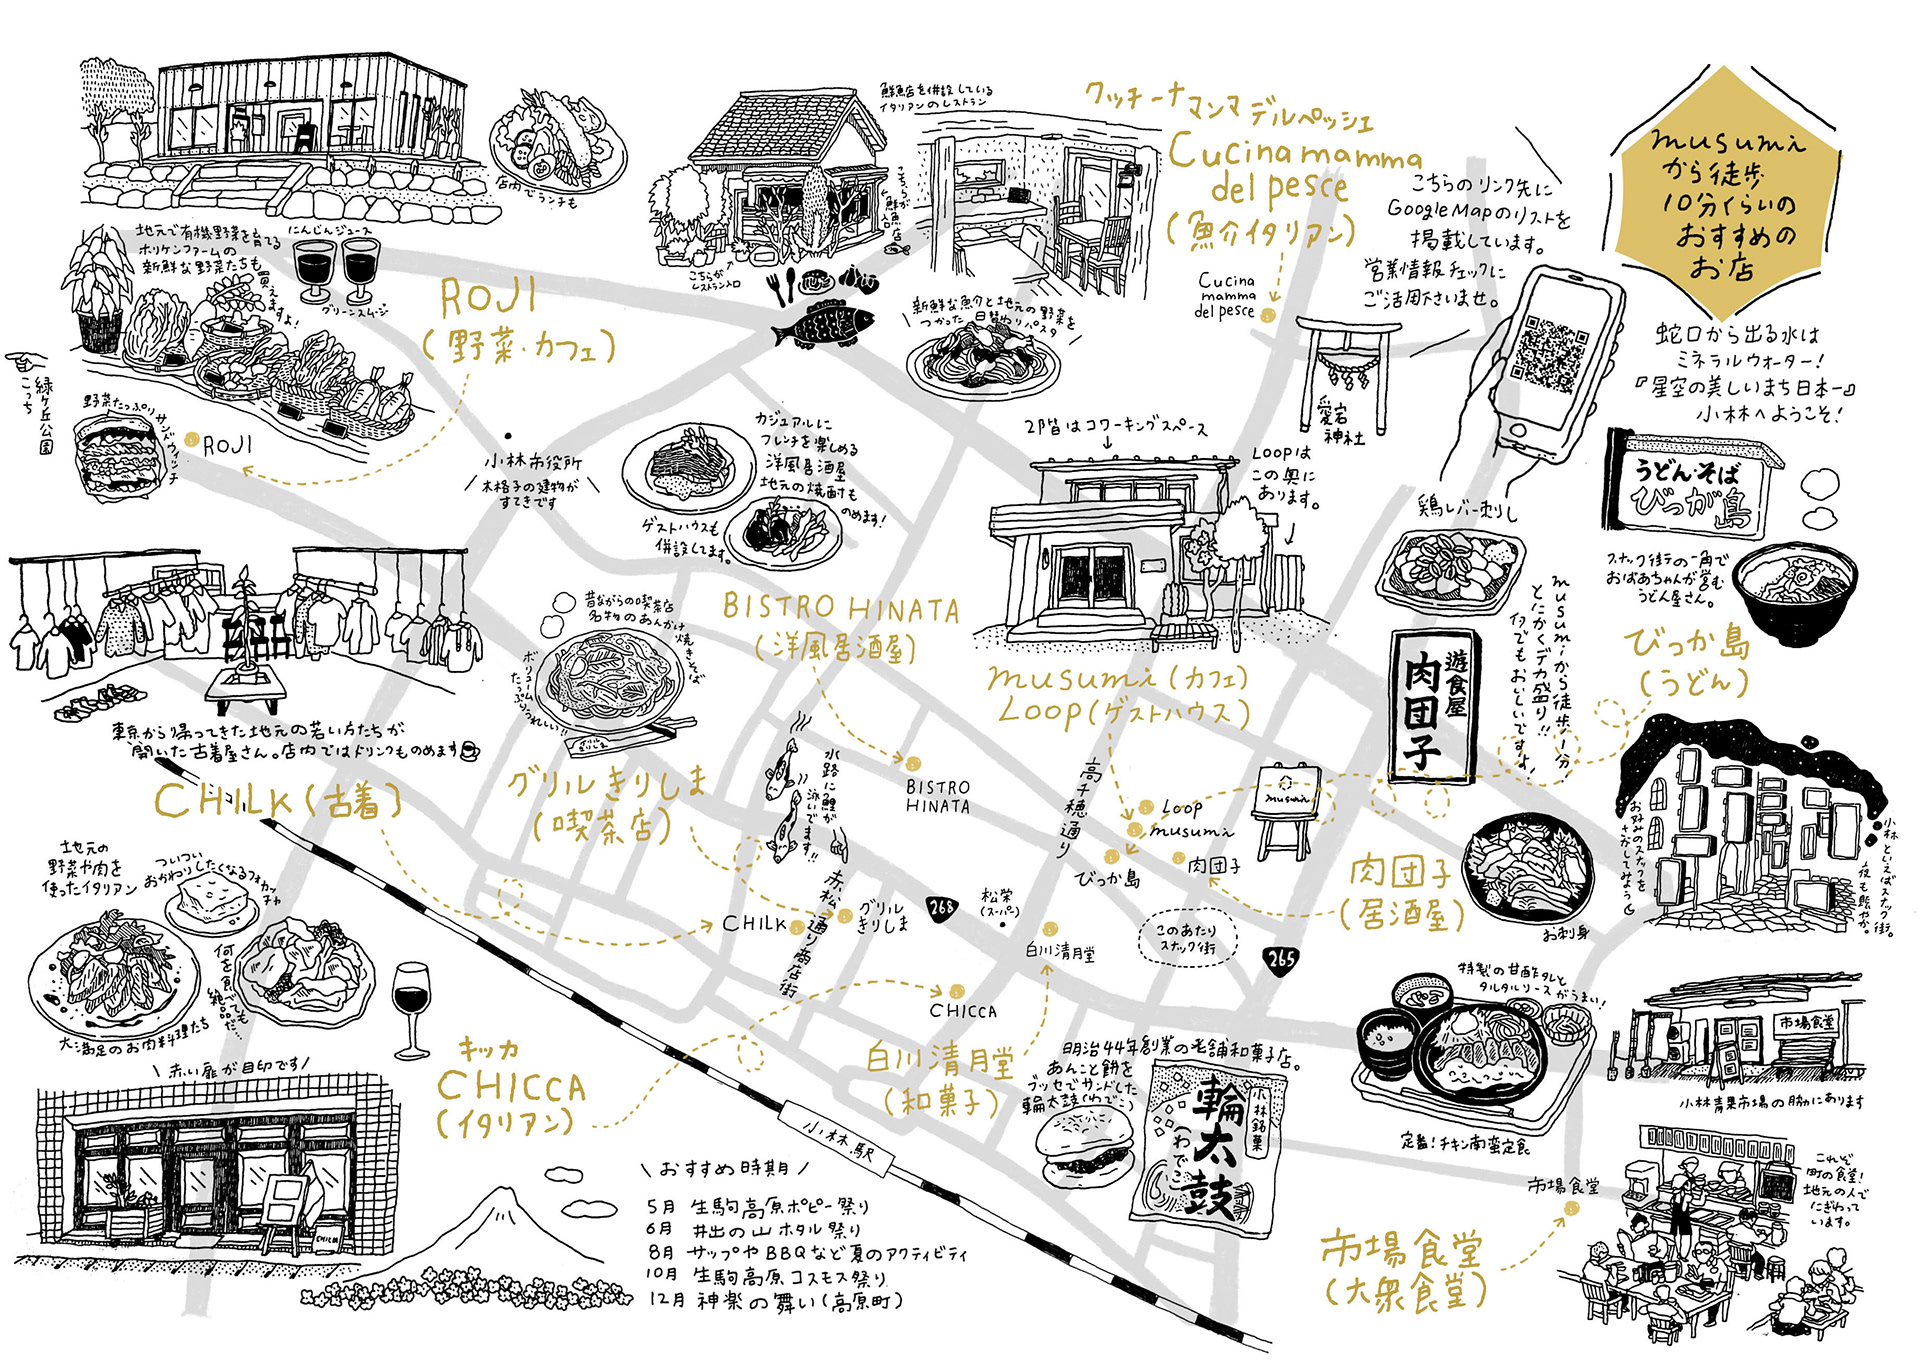 musumi
から徒歩
10分くらいの
おすすめの
お店
蛇口から出る水は
ミネラルウォーター!
『星空の美しいまち日本一』
小林へようこそ!
こちらのリンク先に
Google Mapのリストを
掲載しています。
営業情報チェックに
ご活用下さいませ。
店内でランチも
地元で有機野菜を育てる
ホリケンファームの
新鮮な野菜たちも
買えますよ!
にんじんジュース
グリーンスムージー
ROJI
(野菜・カフェ)
緑ヶ丘公園
こっち
野菜たっぷりサンドウィッチ
ROJI
小林市役所
木格子の建物が
すてきです
鮮魚店を併設している
イタリアンのレストラン
こちらが鮮魚店入口
こちらが
レストラン入口
クッチーナマンマデルペッシェ
Cucina mamma
del pesce
(魚介イタリアン)
Cucina
mamma
del pesce
新鮮な魚介と地元の野菜を
つかった日替わりパスタ
愛宕
神社
カジュアルに
フレンチを楽しめる
洋風居酒屋
地元の焼酎も
のめます!
ゲストハウスも
併設してます。
BISTRO HINATA
(洋風居酒屋)
BISTRO
HINATA
2階はコワーキングスペース
Loopは
この奥に
あります。
musumi(カフェ)
Loop(ゲストハウス)
Loop
musumi
musumi
鶏レバー刺し
遊食屋
肉団子
musumiから徒歩1分!
とにかくデカ盛り!!
何でもおいしいです!
お刺身
肉団子
(居酒屋)
肉団子
うどん・そば
びっが島
スナック街の一角で
おばあちゃんが営む
うどん屋さん。
びっか島
(うどん)
びっか島
お好みのスナックを
さがしてみよう
小林といえばスナック街。
夜も賑やか。
このあたり
スナック街
東京から帰ってきた地元の若い方たちが
開いた古着屋さん。店内ではドリンクものめます
CHILK(古着)
CHILK
昔ながらの喫茶店
名物のあんかけ
焼きそば
ボリューム
たっぷりうれしい!!
グリルきりしま
グリルきりしま
(喫茶店)
グリル
きりしま
水路に鯉が
泳いでます!!
赤松通り商店街
高千穂通り
268
265
松栄
(スーパー)
白川清月堂
CHICCA
地元の
野菜や肉を
使ったイタリアン
ついつい
おかわりしたくなるフォカッチャ
何を食べても
絶品だ…
大満足のお肉料理たち
赤い扉が目印です
キッカ
CHICCA
(イタリアン)
小林駅
白川清月堂
(和菓子)
明治44年創業の老舗和菓子店。
あんこと餅を
ブッセでサンドした
輪太鼓(わでこ)
小林銘菓
輪太鼓
(わでこ)
特製の甘酢タレと
タルタルソースがうまい!
定番!チキン南蛮定食
市場食堂
小林青果市場の脇にあります
市場食堂
市場食堂
(大衆食堂)
これぞ
町の食堂!
地元の人で
にぎわって
います。
おすすめ時期
5月 生駒高原ポピー祭り
6月 井出の山ホタル祭り
8月 サップやBBQなど夏のアクティビティ
10月 生駒高原コスモス祭り
12月 神楽の舞い(高原町)